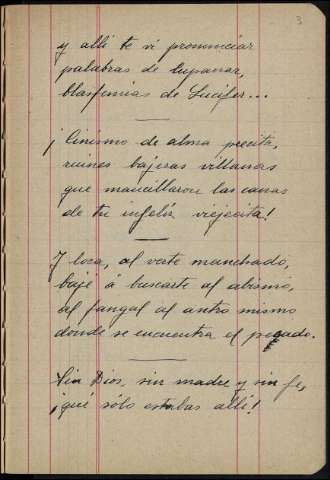 3
y allí te vi pronunciar
palabras de lupanar,
blasfemias de Lucifer...
¡Cinismo de alma precita,
ruines bajezas villanas
que mancillaron las canas
de tu infeliz viejecita!
Y loca, al verte manchado,
bajé á buscarte al abismo,
al fangal al antro mismo
donde se encuentra el pecado.
Sin Dios, sin madre y sin fe,
¡qué sólo estabas allí!